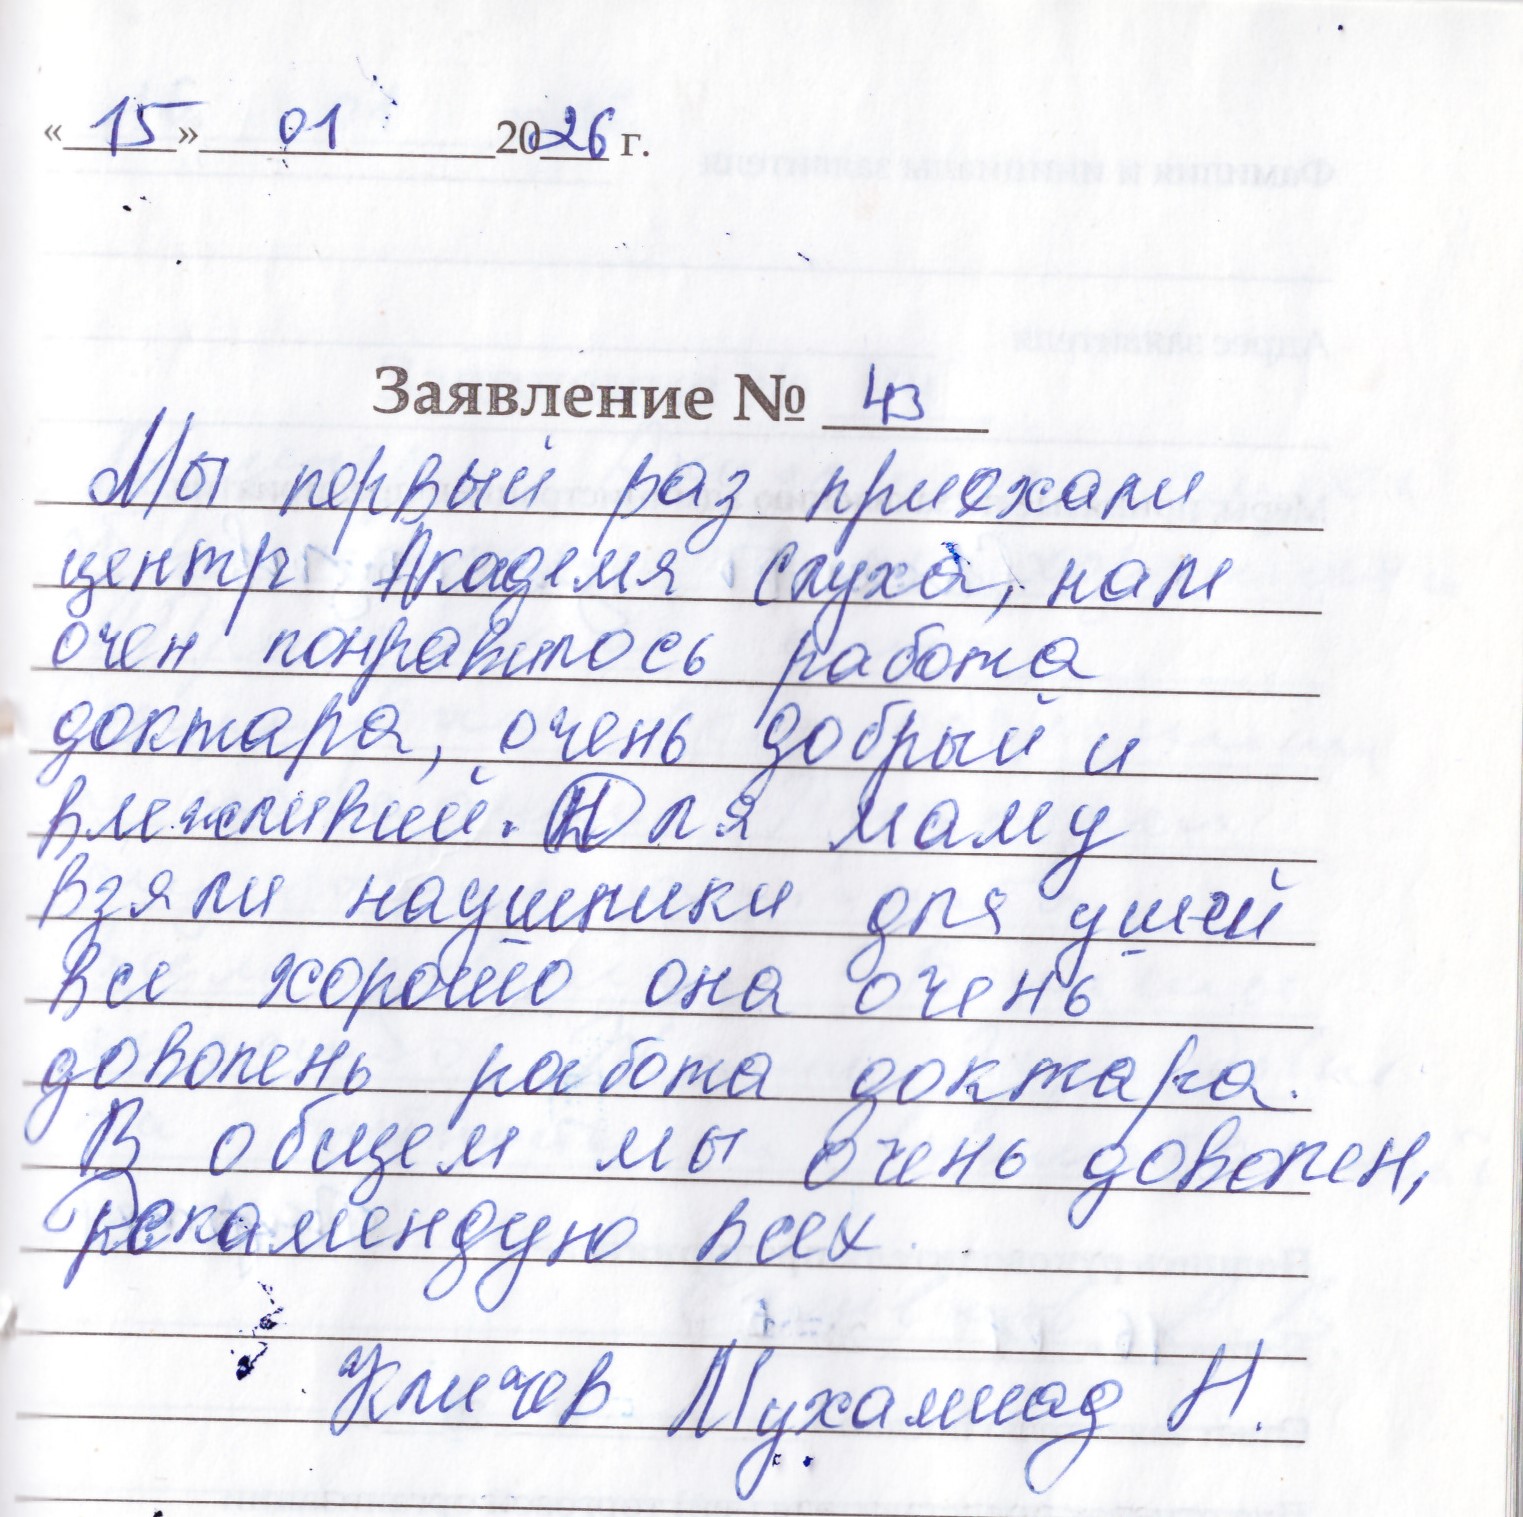 «15» 01 2026 г.
Заявление № 43
Мы первый раз приехали
центр Академя Слуха, нам
очен понравилось работа
доктара, очень добрый и
влежливий. Для маму
взяли наушники для ушей
все хорошо она очень
доволень работа доктара.
В общем мы очень доволен,
Рекамендую всех
Кличев Мухаммад Н.